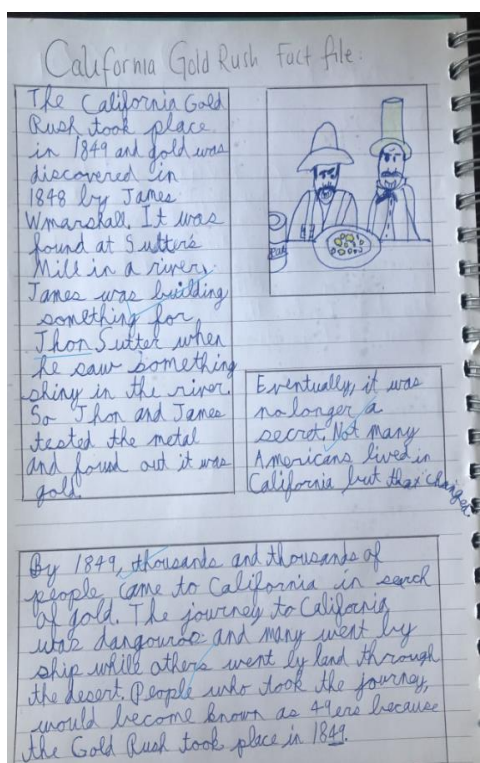 California Gold Rush Fact file:
The California Gold
Rush took place
in 1849 and gold was
discovered in
1848 by James
Wmarshall. It was
found at Sutter's
Mill in a river.
James was building
something for
Jhon Sutter when
he saw something
shiny in the river.
So Jhon and James
tested the metal
and found out it was
gold.
Eventually, it was
no longer a
secret. Not many
Americans lived in
California but that changed
By 1849, thousands and thousands of
people came to California in serch
of gold. The journey to California
was dangouroo and many went by
ship while others went by land through
the desert. People who took the journey,
would become known as 49ers because
the Gold Rush took place in 1849.